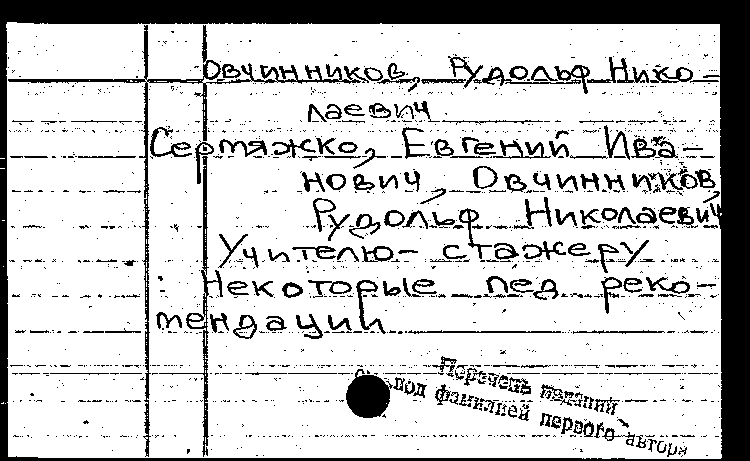 Овчинников, Рудольф Нико-
лаевич
Сертяжко, Евгений Ива-
нович, Овчинников,
Рудольф Николаевич
Учителю-стажеру
: Некоторые пед реко-
мендации
Перечень изданий
см. под фамилией первого автора